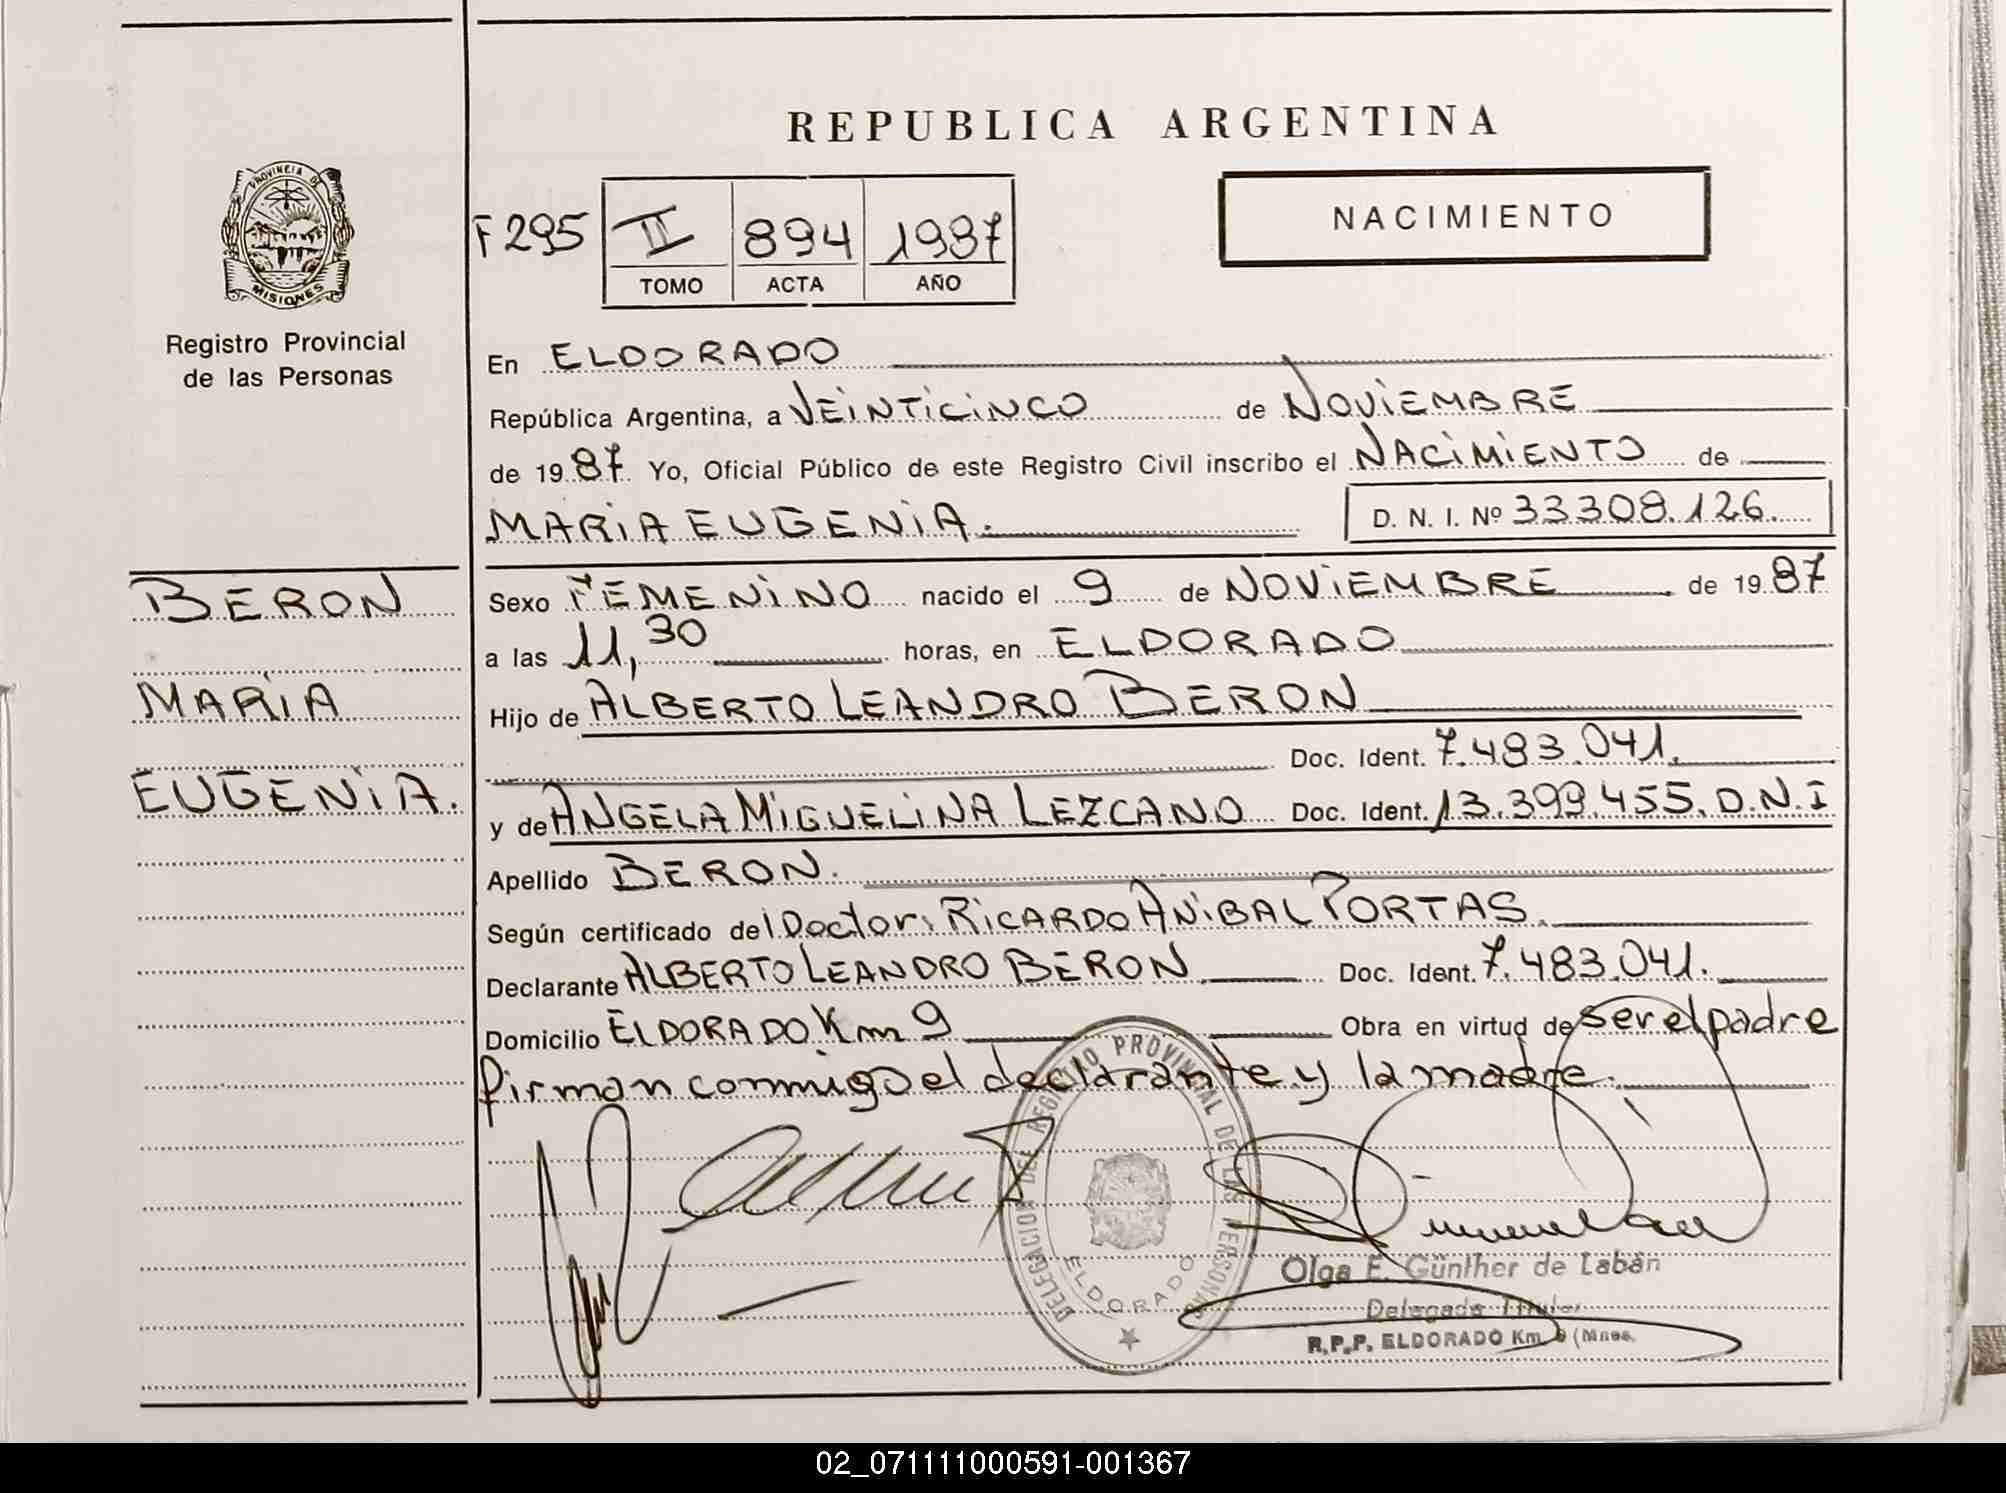 REPUBLICA ARGENTINA
PROVINCIA DE
MISIONES
Registro Provincial
de las Personas
F 295
II 894 1987
TOMO ACTA AÑO
NACIMIENTO
En ELDORADO
República Argentina, a VEINTICINCO de NOVIEMBRE
de 1987 Yo, Oficial Público de este Registro Civil inscribo el NACIMIENTO de
MARIA EUGENIA. D. N. I. Nº 33308.126.
BERON
MARIA
EUGENIA.
Sexo FEMENINO nacido el 9 de NOVIEMBRE de 1987
a las 11,30 horas, en ELDORADO
Hijo de ALBERTO LEANDRO BERON
Doc. Ident. 7.483.041.
y de ANGELA MIGUELINA LEZCANO Doc. Ident. 13.399.455. D.N.I
Apellido BERON.
Según certificado del Doctor: RICARDO ANIBAL PORTAS.
Declarante ALBERTO LEANDRO BERON Doc. Ident. 7.483.041.
Domicilio ELDORADO Km 9 Obra en virtud de ser el padre
firman conmigo el declarante y la madre.
DELEGACION DEL REGISTRO PROVINCIAL DE LAS PERSONAS
ELDORADO
Olga E. Günther de Labán
Delegada Titular
R.P.P. ELDORADO Km. 9 (Mnes.
02_071111000591-001367